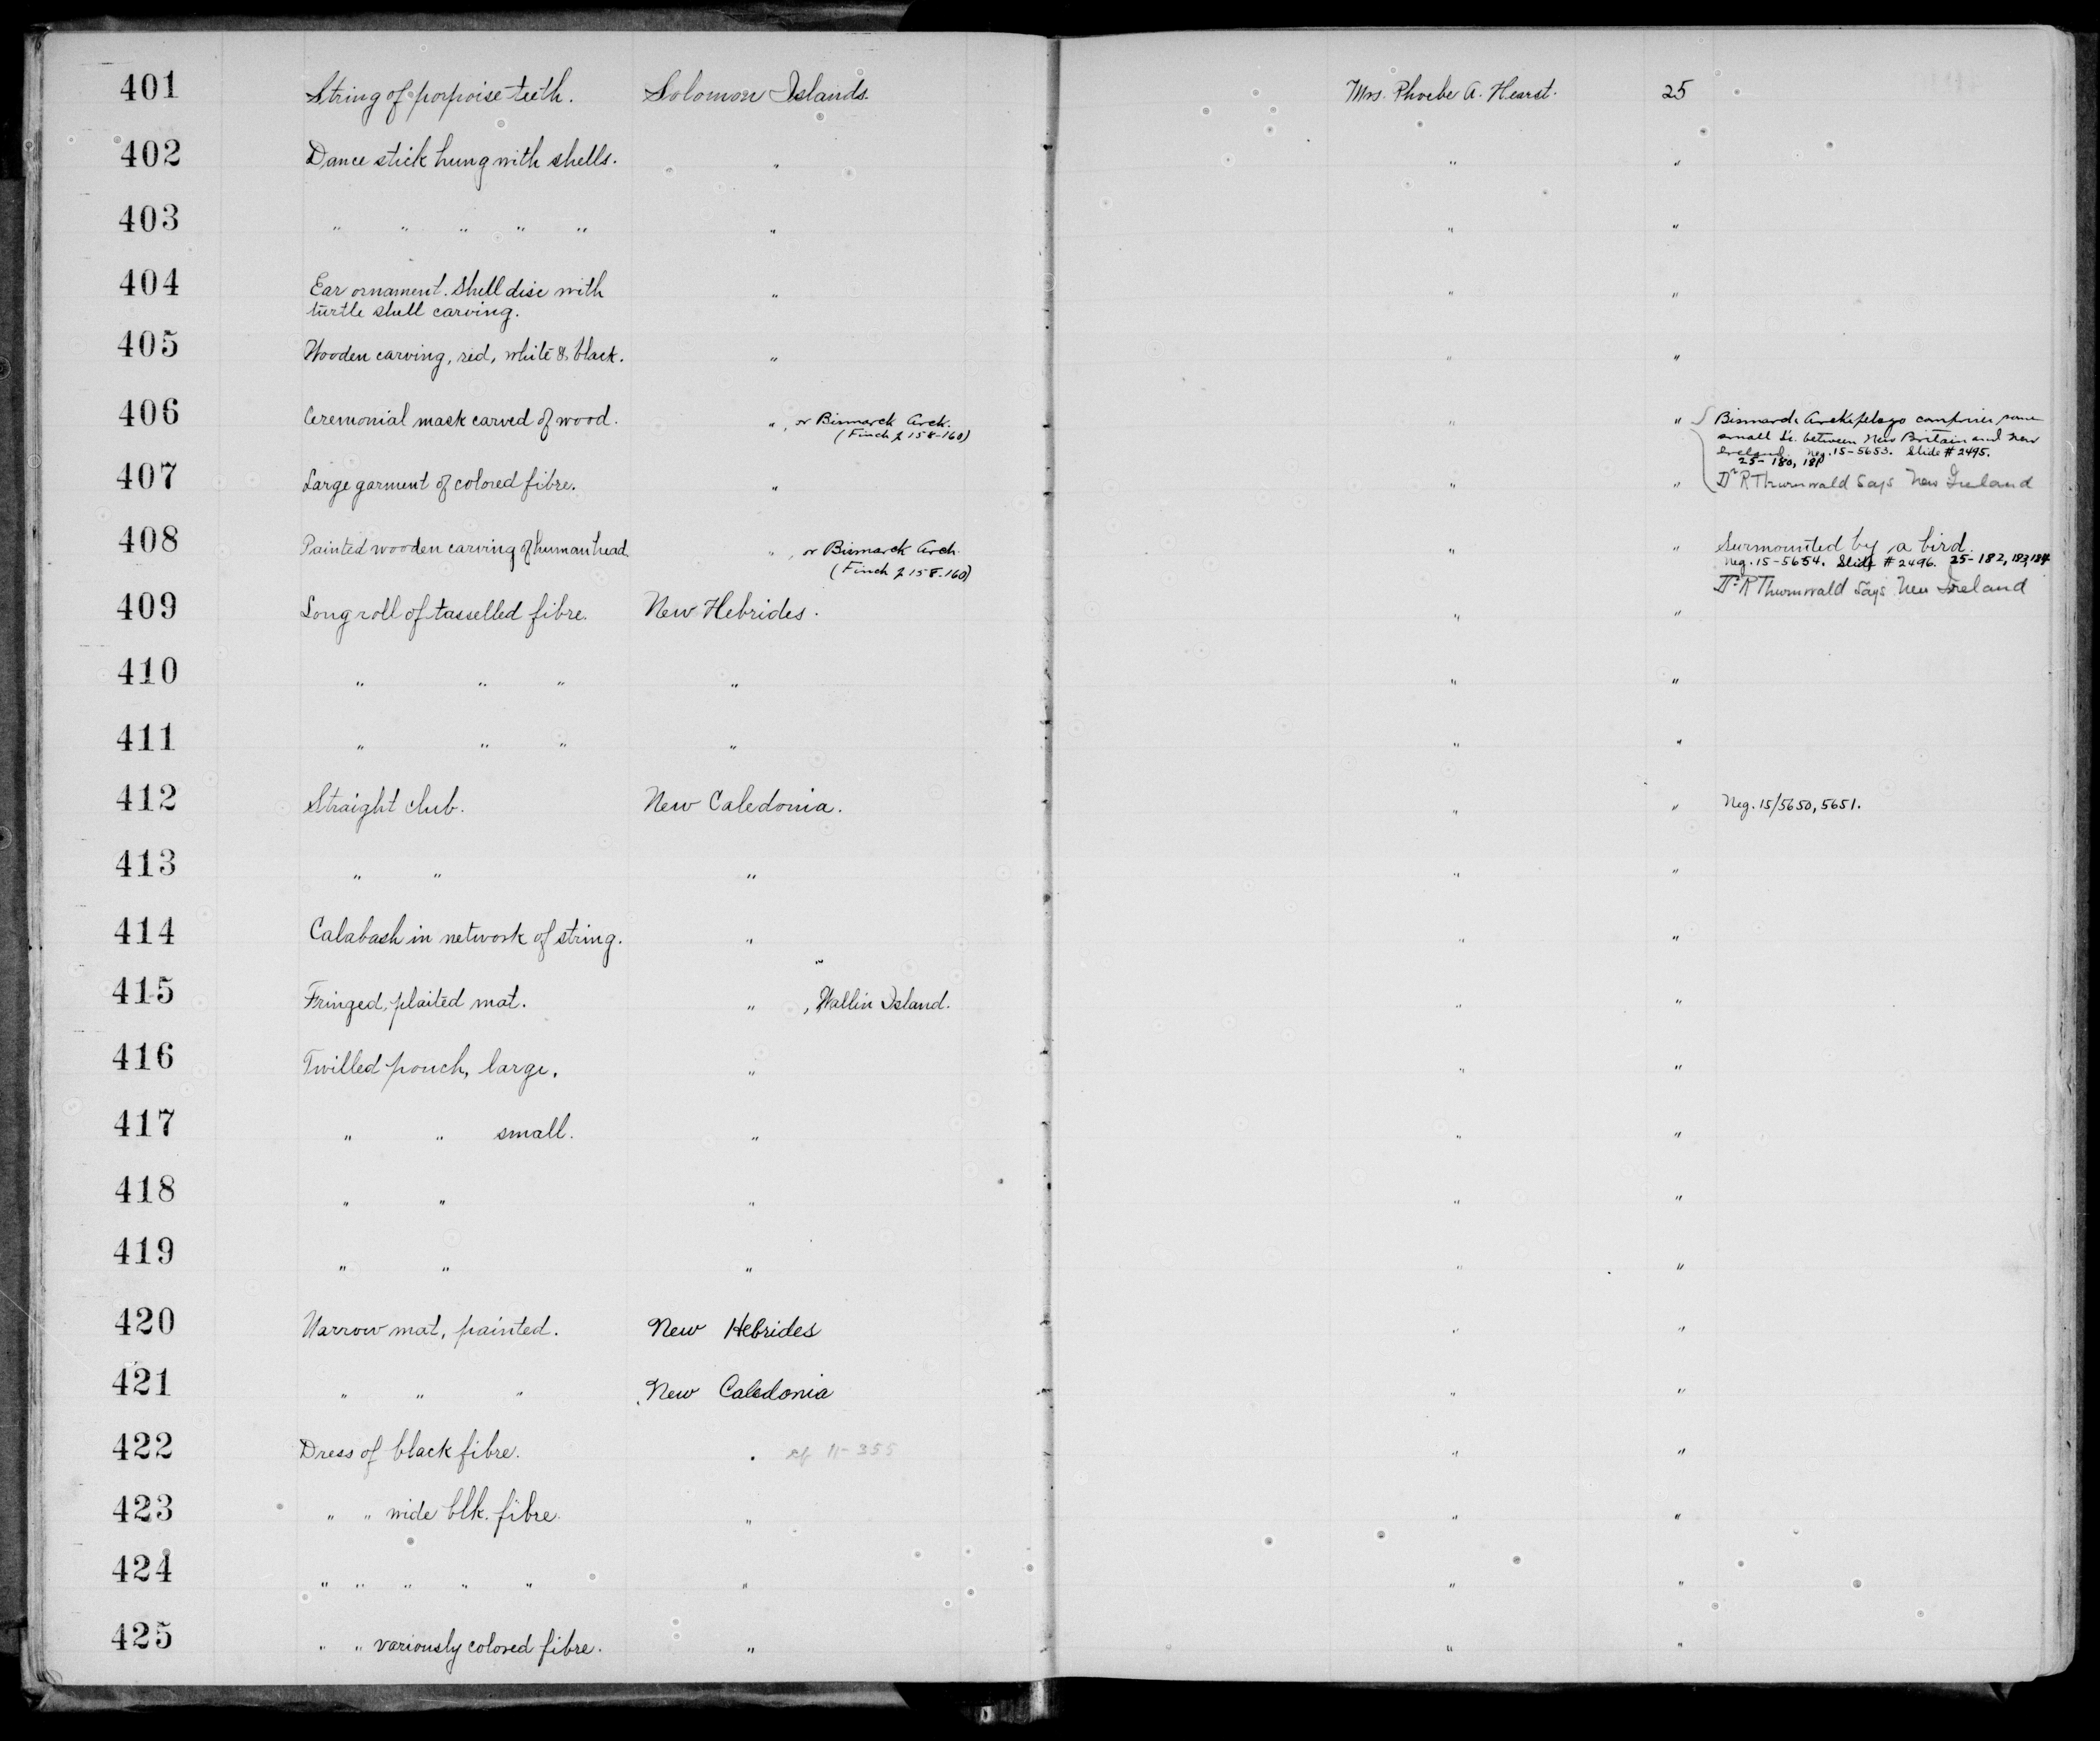 401 String of porpoise teeth. Solomon Islands. Mrs. Phoebe A. Hearst. 25
402 Dance stick hung with shells. " " "
403 " " " " " " " "
404 Ear ornament. Shell disc with " " "
turtle shell carving.
405 Wooden carving, red, white & black. " " "
406 Ceremonial mask carved of wood. " , or Bismarck Arch. " " Bismarck Archipelago comprises some
(Finch p 158-160) small Is. between New Britain and New
Ireland. Neg. 15-5653. Slide # 2495.
25-180, 181
407 Large garment of colored fibre. " " " Dr R Thurnwald Says New Ireland
408 Painted wooden carving of human head " , or Bismarck Arch. " " Surmounted by a bird.
(Finch p 158-160) Neg. 15-5654. Slide # 2496. 25-182, 183, 184
Dr R Thurnwald Says New Ireland
409 Long roll of tasselled fibre. New Hebrides. " "
410 " " " " " "
411 " " " " " "
412 Straight club. New Caledonia. " " Neg. 15/5650, 5651.
413 " " " " "
414 Calabash in network of string. " " "
415 Fringed, plaited mat. " , Wallin Island. " "
416 Twilled pouch, large. " " "
417 " " small. " " "
418 " " " " "
419 " " " " "
420 Narrow mat, painted. New Hebrides " "
421 " " " New Caledonia " "
422 Dress of black fibre. " cf 11-355 " "
423 " " wide blk. fibre. " " "
424 " " " " " " " "
425 " " variously colored fibre. " " "